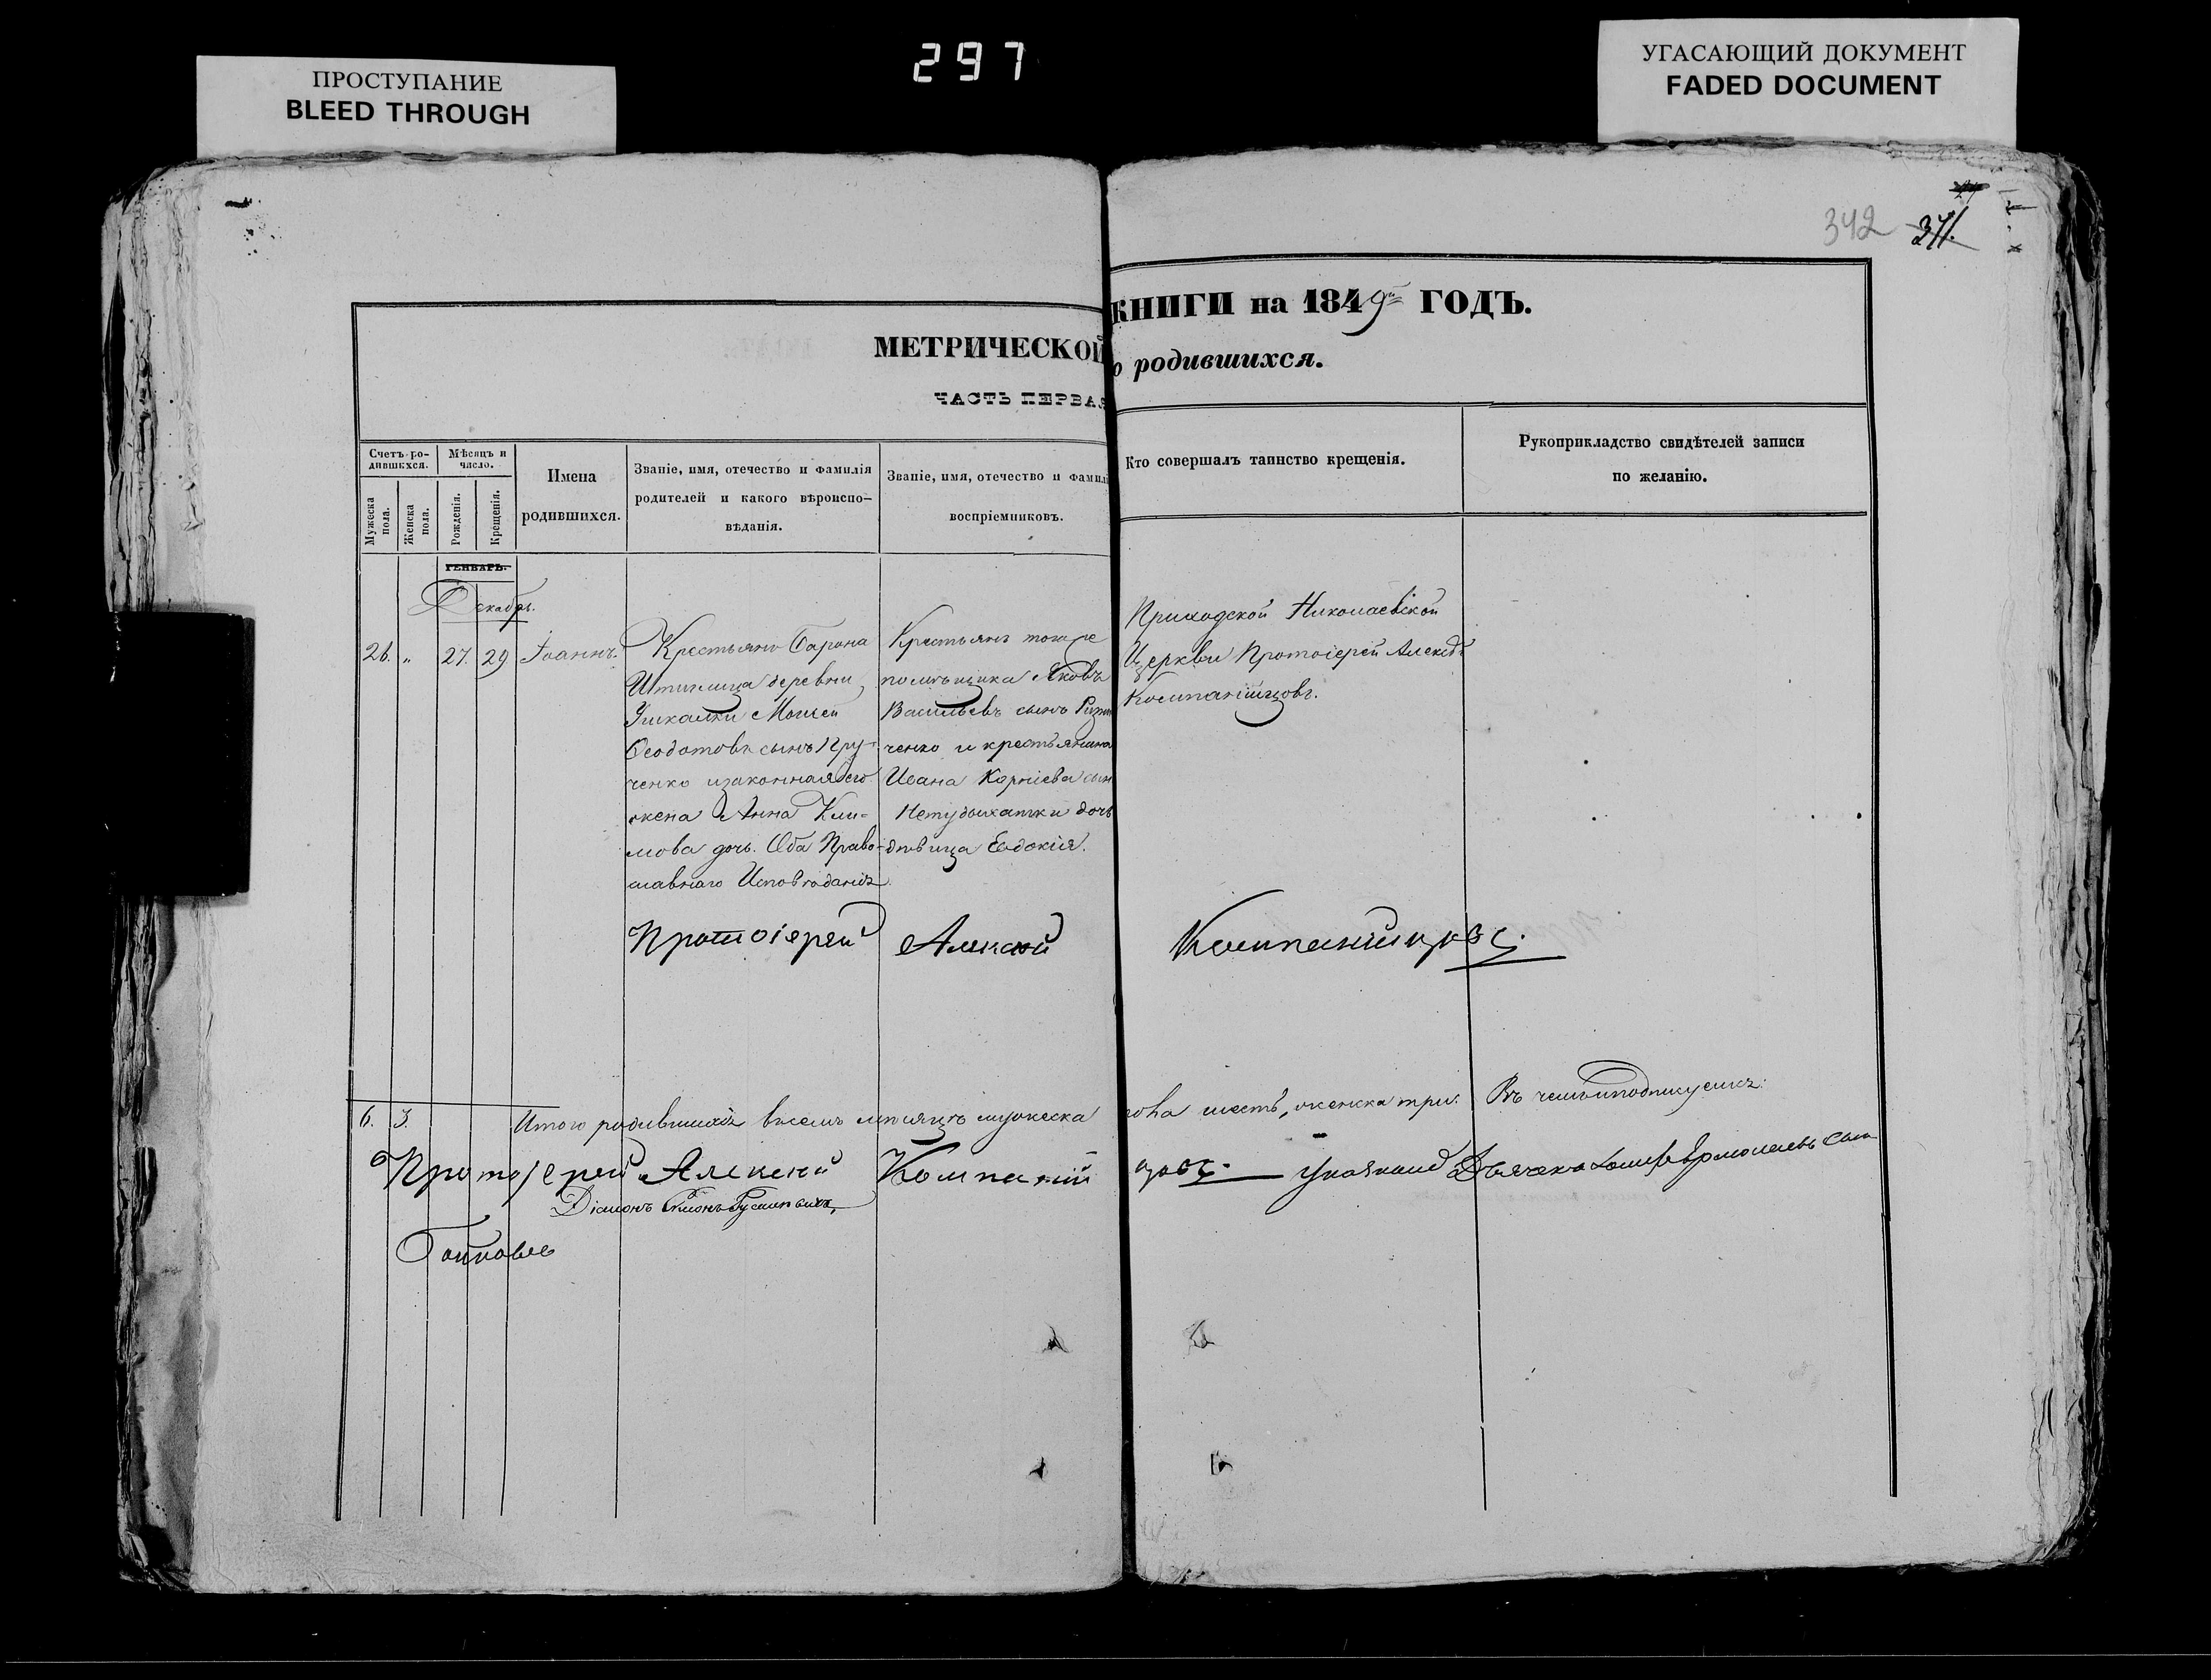 297
ПРОСТУПАНИЕ
BLEED THROUGH
УГАСАЮЩИЙ ДОКУМЕНТ
FADED DOCUMENT
342 371.
МЕТРИЧЕСКОЙ КНИГИ на 1849й ГОДЪ.
ЧАСТЬ ПЕРВАЯ о родившихся.
Счетъ ро-
дившихся.
Мужеска пола.
Женска пола.
Мѣсяцъ и
число.
Рожденія.
Крещенія.
Имена
родившихся.
Званіе, имя, отечество и фамилія
родителей и какого вѣроиспо-
вѣданія.
Званіе, имя, отечество и фамилі
воспріемниковъ.
Кто совершалъ таинство крещенія.
Рукоприкладство свидѣтелей записи
по желанію.
ГЕНВАРЬ.
Декабрь.
26. „ 27. 29 Іоаннъ.
Крестьянъ Барона
Штиглица деревни
Моисей
Ѳеодотовъ сынъ Пру-
ченко и законная его
жена Анна Кли-
мова дочь. Оба Право-
славнаго Исповѣданія
Крестьянъ тогоже
помѣщика Яковъ
Васильевъ сынъ
ченко и крестьянина
Ивана Корніева сын
Нетудыхатки дочь
дѣвица Евдокія.
Приходской Николаевской
Церкви Протоіерей Алексѣй
Компанійцовъ.
Протоіерей Алексѣй Компанійцовъ.
6. 3. Итого родившихся въ семъ мѣсяцѣ мужеска пола шесть, женска три. Въ чемъ и подписуемся:
Протоіерей Алексѣй Компанійцовъ.
Діаконъ